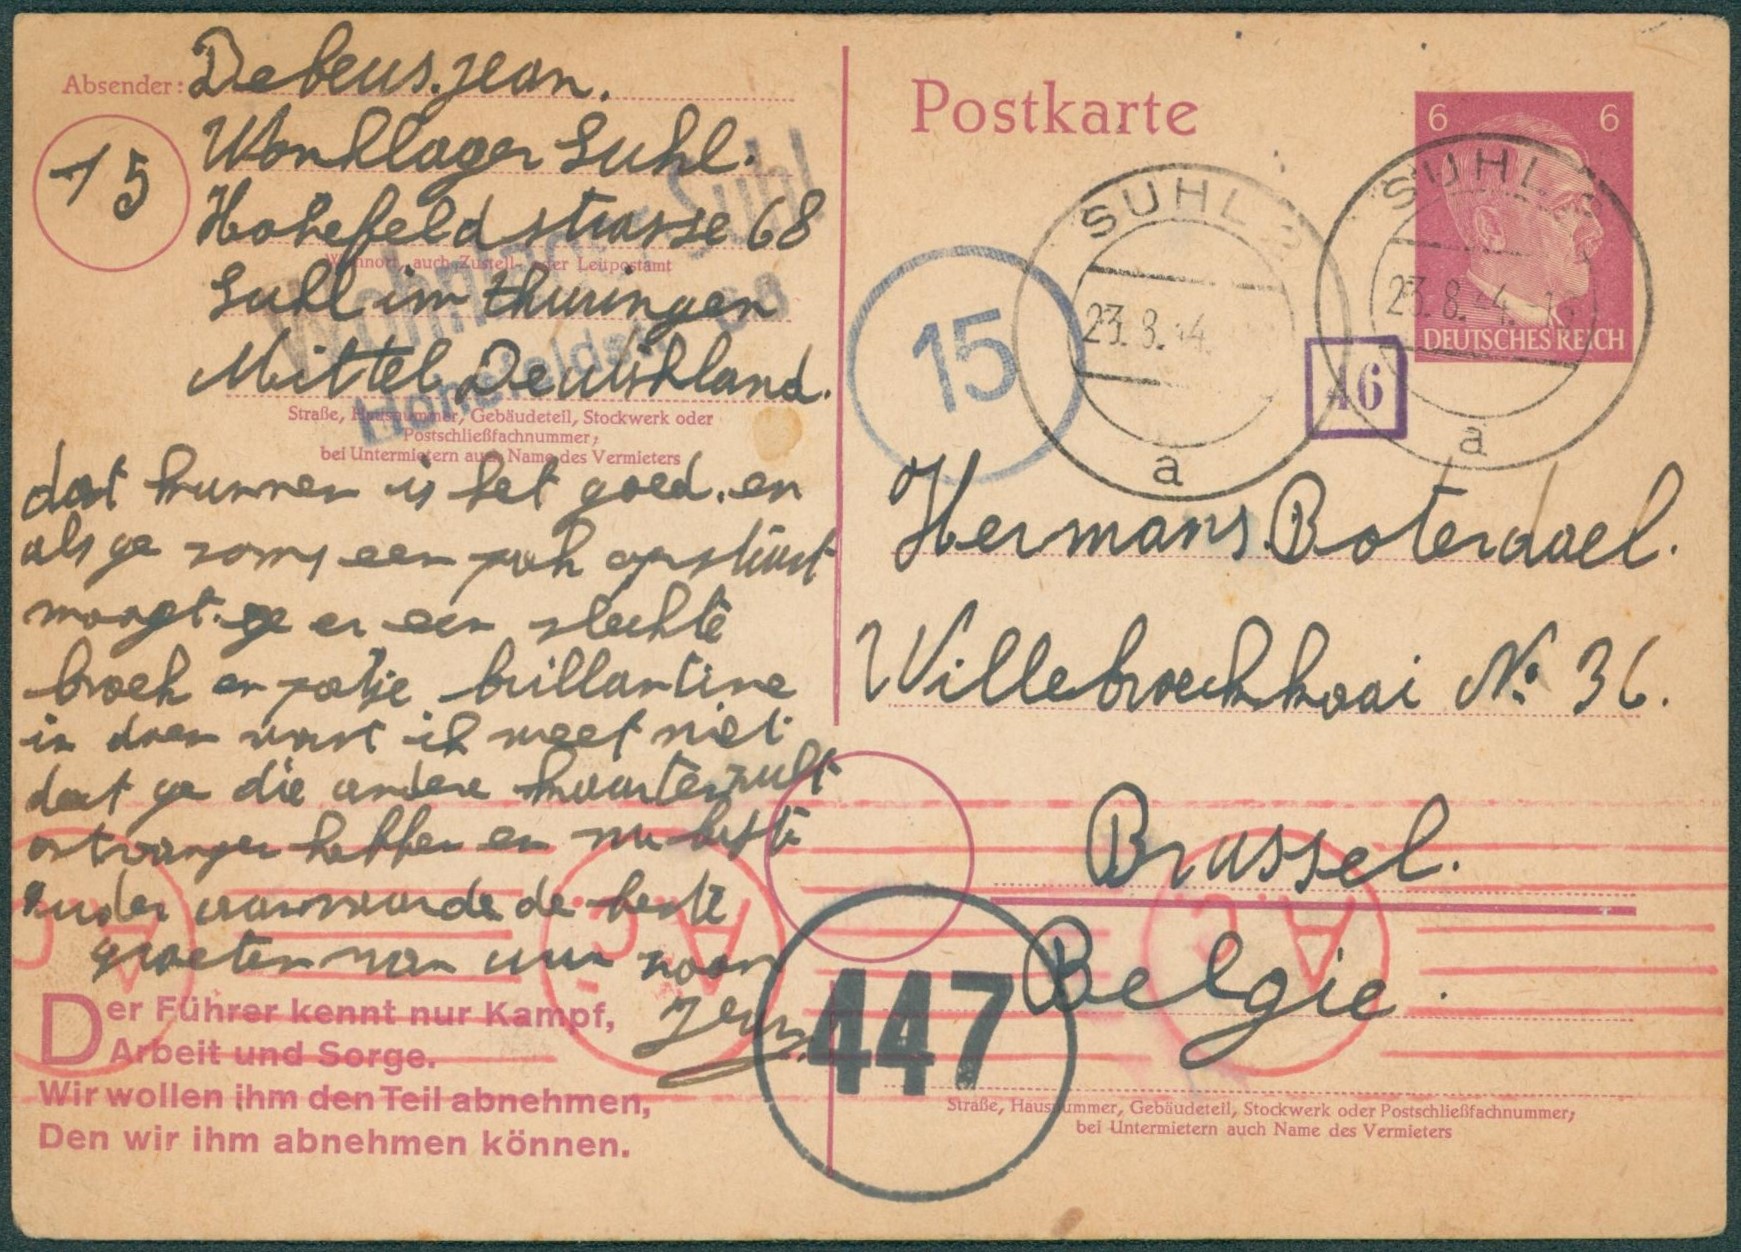 Absender: Debeus. Jean.
15
Wonhlager Suhl.
Hohefeld strasse 68
Wohnort, auch Zustell- oder Leitpostamt
Suhl im thuringen
Mittel Deutshland.
Straße, Hausnummer, Gebäudeteil, Stockwerk oder
Postschließfachnummer;
bei Untermietern auch Name des Vermieters
Wohnlager Suhl
68
dat kunnen is het goed. en
als ge soms een pak opstuurt
moogt. ge er een slechte
broek en potje brillantine
in doen want ik weet niet
dat ge die andere kaarten zult
ontvangen hebben en nu beste
ouders aanvaarde de beste
groeten van uwe zoon
Jean.
Der Führer kennt nur Kampf,
Arbeit und Sorge.
Wir wollen ihm den Teil abnehmen,
Den wir ihm abnehmen können.
Postkarte
6 6
DEUTSCHES REICH
SUHL 2
23.8.44
a
SUHL 2
23.8.44
a
15
46
Hermans Boterdael.
Willebroeckkaai No 36.
Brussel.
Belgie.
Straße, Hausnummer, Gebäudeteil, Stockwerk oder Postschließfachnummer;
bei Untermietern auch Name des Vermieters
447
A.C.
A.C.
A.C.